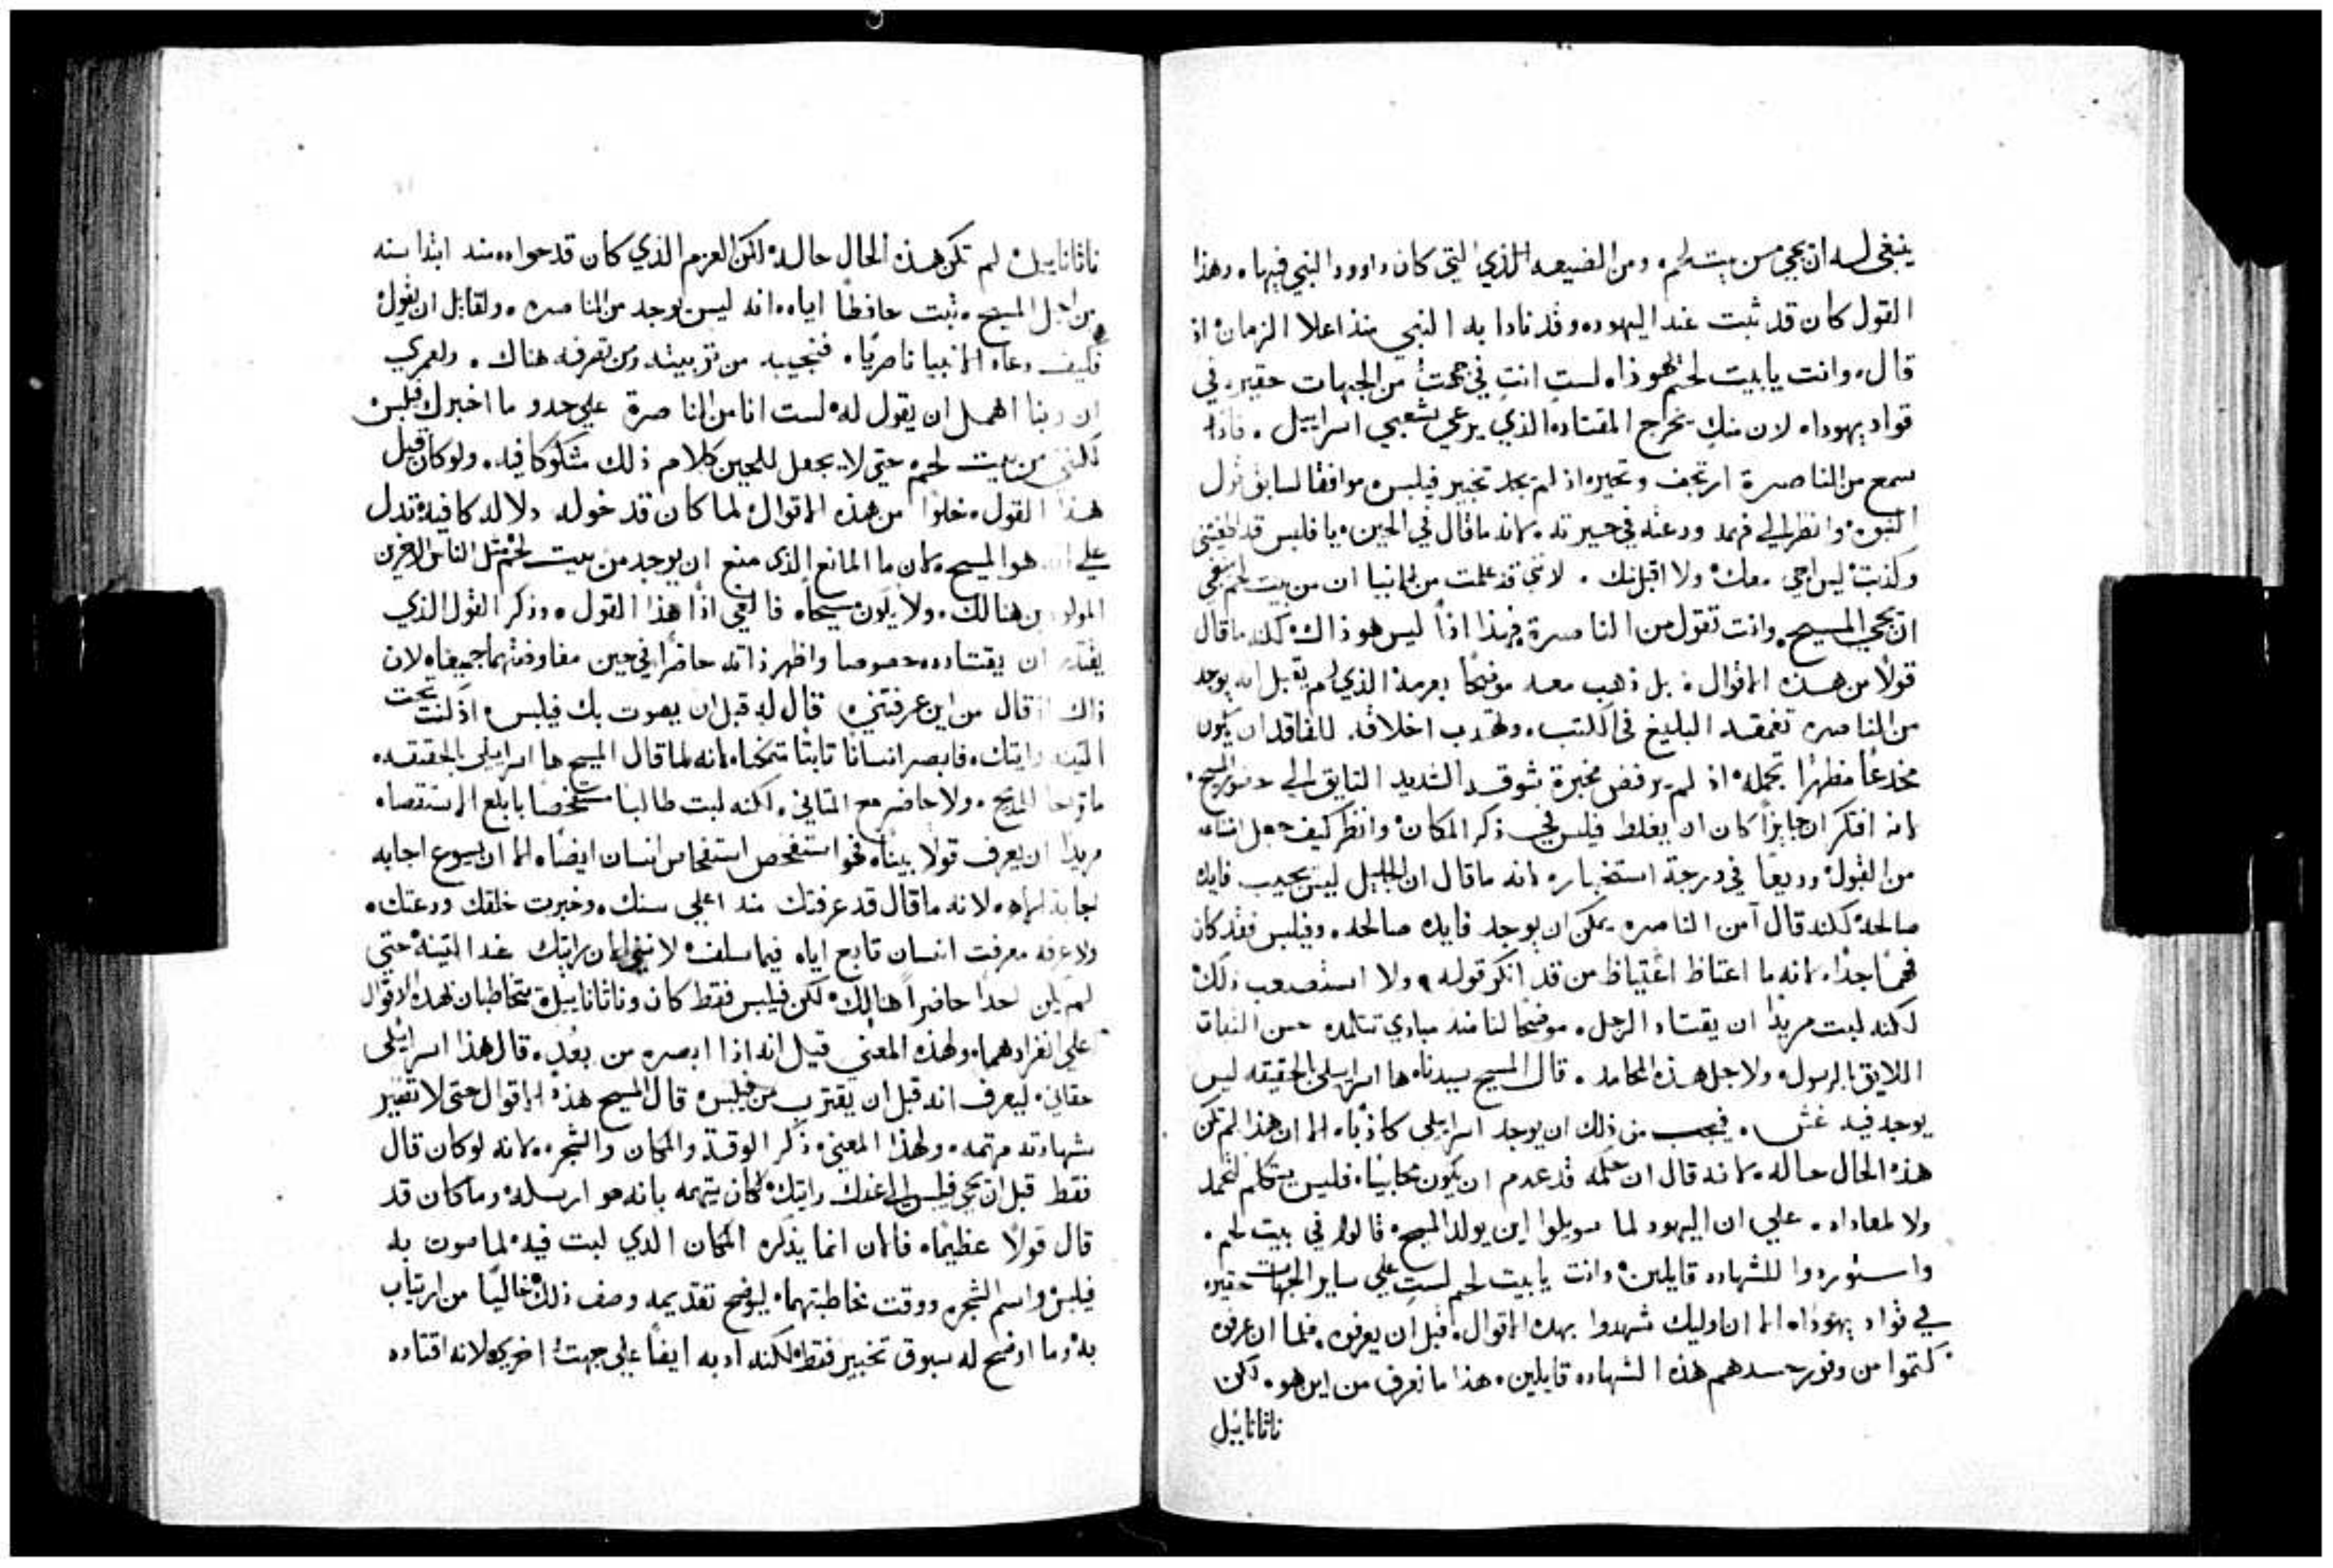 ينبغي له ان يجي من بيت لحم ومن الضيعه الذي التي كان داوود النبي فيها وهذا
القول كان قد ثبت عند اليهود وقد نادا به النبي منذ اعلا الزمان اذ
قال وانت يا بيت لحم لست انت في من الجهات حقيره في
قواد يهودا لان منك يخرج المقتاد الذي يرعي شعبي اسراييل فاذا
سمع من الناصرة ارتجف وتحير اذ لم يجد تخبير فيلبس موافقا لسابق قول
النبوه وانظر الي فهمه ودعته في حيرته لانه ما قال في الحين يا فلبس قد
وكذبت ليس اجي معك ولا اقبل منك لانني قد علمت من الانبيا ان من بيت لحم ينبغي
ان يجي المسيح وانت تقول من الناصرة فهذا اذاً ليس هو ذاك لكنه ما قال
قولاً من هذه الاقوال بل ذهب معه موضحاً بعزمه الذي لم يقبل انه يوجد
من الناصره تعمقه البليغ في الكتب وتهذب اخلاقه الفاقد ان يكون
مخدعاً مظهراً بجمله اذ لم يرفض مخبرة شوقه الشديد التايق الي حضور المسيح
لانه افتكر ان جايزاً كان ان يغلط فيلبس في ذكر المكان وانظر كيف جعل
من القول وديعا في درجة استخباره لانه ما قال ان الجليل ليس يجيب فايده
صالحه لكنه قال امن الناصره يمكن ان يوجد فايده صالحه وفيلبس فقد كان
فهماً جداً لانه ما اغتاظ اغتياظ من قد انكر قوله ولا استصعب ذلك
لكنه لبث مريداً ان يقتاد الرجل موضحاً لنا منذ مبادي تتلمده حسن الثبات
اللايق بالرسول ولاجل هذه المحامد قال المسيح سيدنا ها اسراييلي بالحقيقه ليس
يوجد فيه غش فيجب من ذلك ان يوجد اسراييلي كاذباً الا ان هذا لم تكن
هذه الحال حاله لانه قال ان حكمه قد عدم ان يكون محابياً فليس يتكلم لحمد
ولا لمعاداه علي ان اليهود لما سويلوا اين يولد المسيح قالوا في بيت لحم
واستوردوا للشهاده قايلين وانت يا بيت لحم لست علي ساير الجهات حقيره
في قواد يهوذا الا ان اوليك شهدوا بهذه الاقوال قبل ان يعرفوه فلما ان عرفوه
كتموا من وفور حسدهم هذه الشهاده قايلين هذا ما نعرف من اين هو لكن
ناثاناييل
ناثاناييل لم تكن هذه الحال حاله لكن العزم الذي كان قد حواه منذ ابتدا سنه
من اجل المسيح ثبت حافظاً اياه انه ليس يوجد من الناصره ولقايل ان يقول
فكيف دعاه الانبيا ناصرياً فنجيبه من تربيته ومن تصرفه هناك ولعمري
ان ربنا اهمل ان يقول له لست انا من الناصرة علي حدو ما اخبرك فيلبس
لكنني من بيت لحم حتي لا يجعل للحين كلام ذلك مشكوكا فيه ولو كان قبل
هذا القول خلواً من هذه الاقوال لما كان قد خوله دلاله كافيه تدل
علي انه هو المسيح لان ما المانع الذي منع ان يوجد من بيت لحم مثل الناس الاخرين
المولودين هنالك ولا يكون مسيحاً فالغي اذاً هذا القول وذكر القول الذي
يقتدر ان يقتاده خصوصا واظهر ذاته حاضراً في حين مفاوضتهما جميعاً لان
ذاك اذ قال من اين عرفتني قال له قبل ان يصوت بك فيلبس اذ كنت تحت
التينه رايتك فابصر انساناً ثابتاً لانه لما قال المسيح ها اسراييلي بالحقيقه
ما المديح ولا حاضر مع الثاني لكنه لبث طالبا مستفحصاً بابلغ الاستقصاه
مريداً ان يعرف قولاً بيناً فهو استفحص استفحاص انسان ايضاً الا ان يسوع اجابه
اجابة لانه ما قال قد عرفتك منذ اعلي سنك وخبرت خلقك ودعتك
ولا عرفه معرفت انسان تابع اياه فيما سلف لانني الان رايتك عند التينة حتي
لم يكن احداً حاضراً هنالك لكن فيلبس فقط كان وناثاناييل يتخاطبان بهذه الاقوال
علي انفرادهما ولهذه المعني قيل انه اذا ابصره من بعد قال هذا اسراييلي
حقاني ليعرف انه قبل ان يقترب من فيلبس قال المسيح هذه الاقوال حتي لا تصير
شهادته متهمه ولهذا المعني ذكر الوقت والمكان والشجره لانه لو كان قال
فقط قبل ان يجي فيلبس الي عندك رايتك لكان يتهمه بانه هو ارسله وما كان قد
قال قولاً عظيماً فالان انما يذكره المكان الذي لبث فيه لما صوت به
فيلبس واسم الشجره ووقت مخاطبتهما ليوضح تقديمه وصف ذلك خالياً من ارتياب
به وما اوضح له سبوق تخبير فقط لكنه ادبه ايضاً علي جهة اخري لانه اقتاده